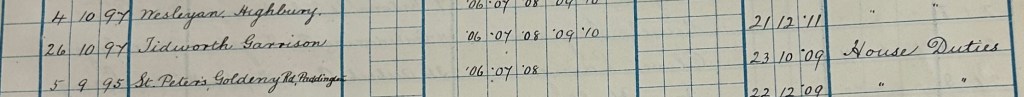 4 10 97 Wesleyan, Highbury. '06 '07 08 09 10 21 12 '11 " "
26 10 97 Tidworth Garrison '06 '07 '08 '09 '10 23 10 '09 House Duties
5 9 95 St. Peter's, Goldeny Rd, Paddington '06 '07 '08 22 12 '09 " "